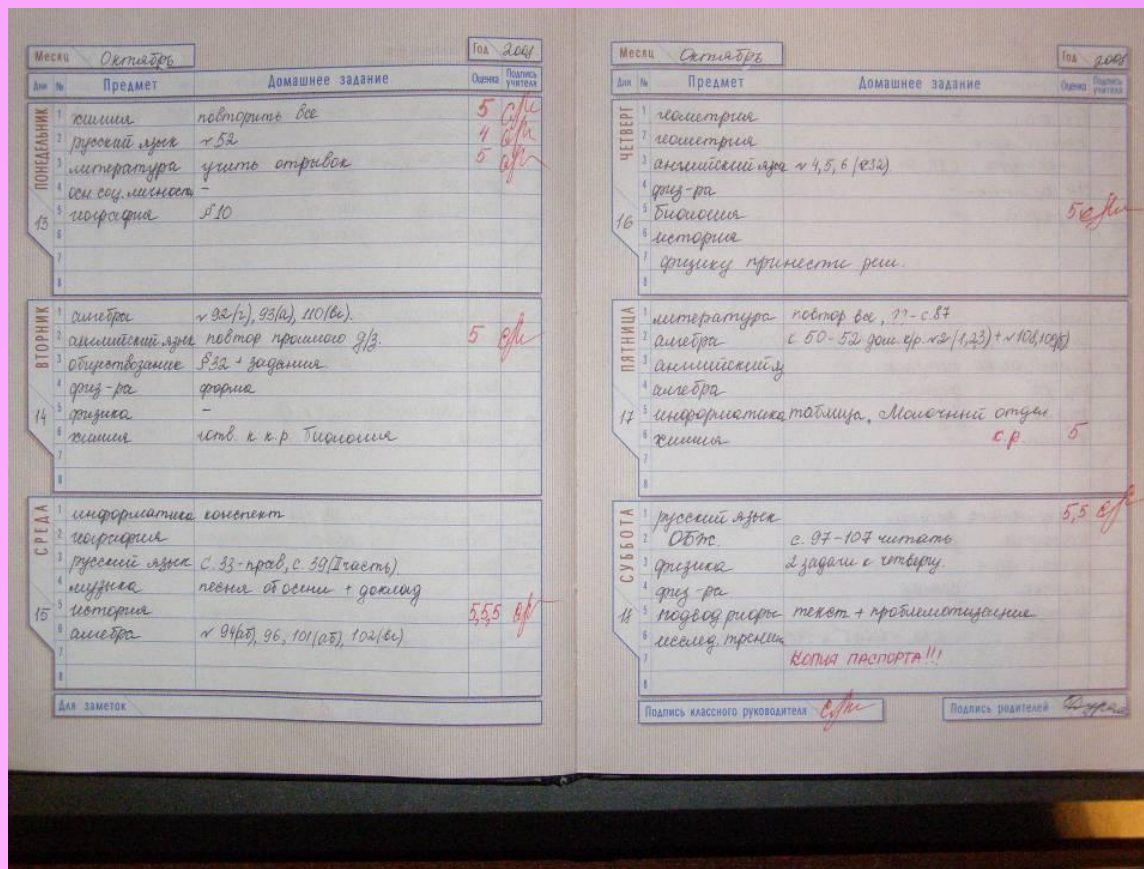 Месяц Октябрь Год 2008
Дни № Предмет Домашнее задание Оценка Подпись учителя
ПОНЕДЕЛЬНИК
13
1 химия повторить все 5
2 русский язык № 52 4
3 литература учить отрывок 5
4 осн. соц. личности -
5 география § 10
6
7
8
ВТОРНИК
14
1 алгебра № 92(г), 93(а), 110(вг).
2 английский язык повтор прошлого д/з. 5
3 обществозание §32 + задания
4 физ-ра форма
5 физика -
6 химия готв. к к.р. Биология
7
8
СРЕДА
15
1 информатика конспект
2 география
3 русский язык с. 33-прав, с. 39(II часть).
4 музыка песня об осени + доклад
5 история 5,5,5
6 алгебра № 94(аб), 96, 101(аб), 102(вг)
7
8
Для заметок
Месяц Октябрь Год 2008
Дни № Предмет Домашнее задание Оценка Подпись учителя
ЧЕТВЕРГ
16
1 геометрия
2 геометрия
3 английский язы № 4,5,6 (с32)
4 физ-ра
5 биология 5
6 история
7 физику принести реш.
8
ПЯТНИЦА
17
1 литература повтор все, ??-с.87
2 алгебра с 50-52 дом. к/р. №2 (1,23) + № 108,
3 английский я
4 алгебра
5 информатика таблица, Молочный отдел
6 химия с.р. 5
7
8
СУББОТА
18
1 русский язык 5,5
2 ОБЖ. с. 97-107 читать
3 физика 2 задачи к четвергу.
4 физ-ра
5 текст +
6 исслед. тренин
7 КОПИЯ ПАСПОРТА!!!
8
Подпись классного руководителя
Подпись родителей